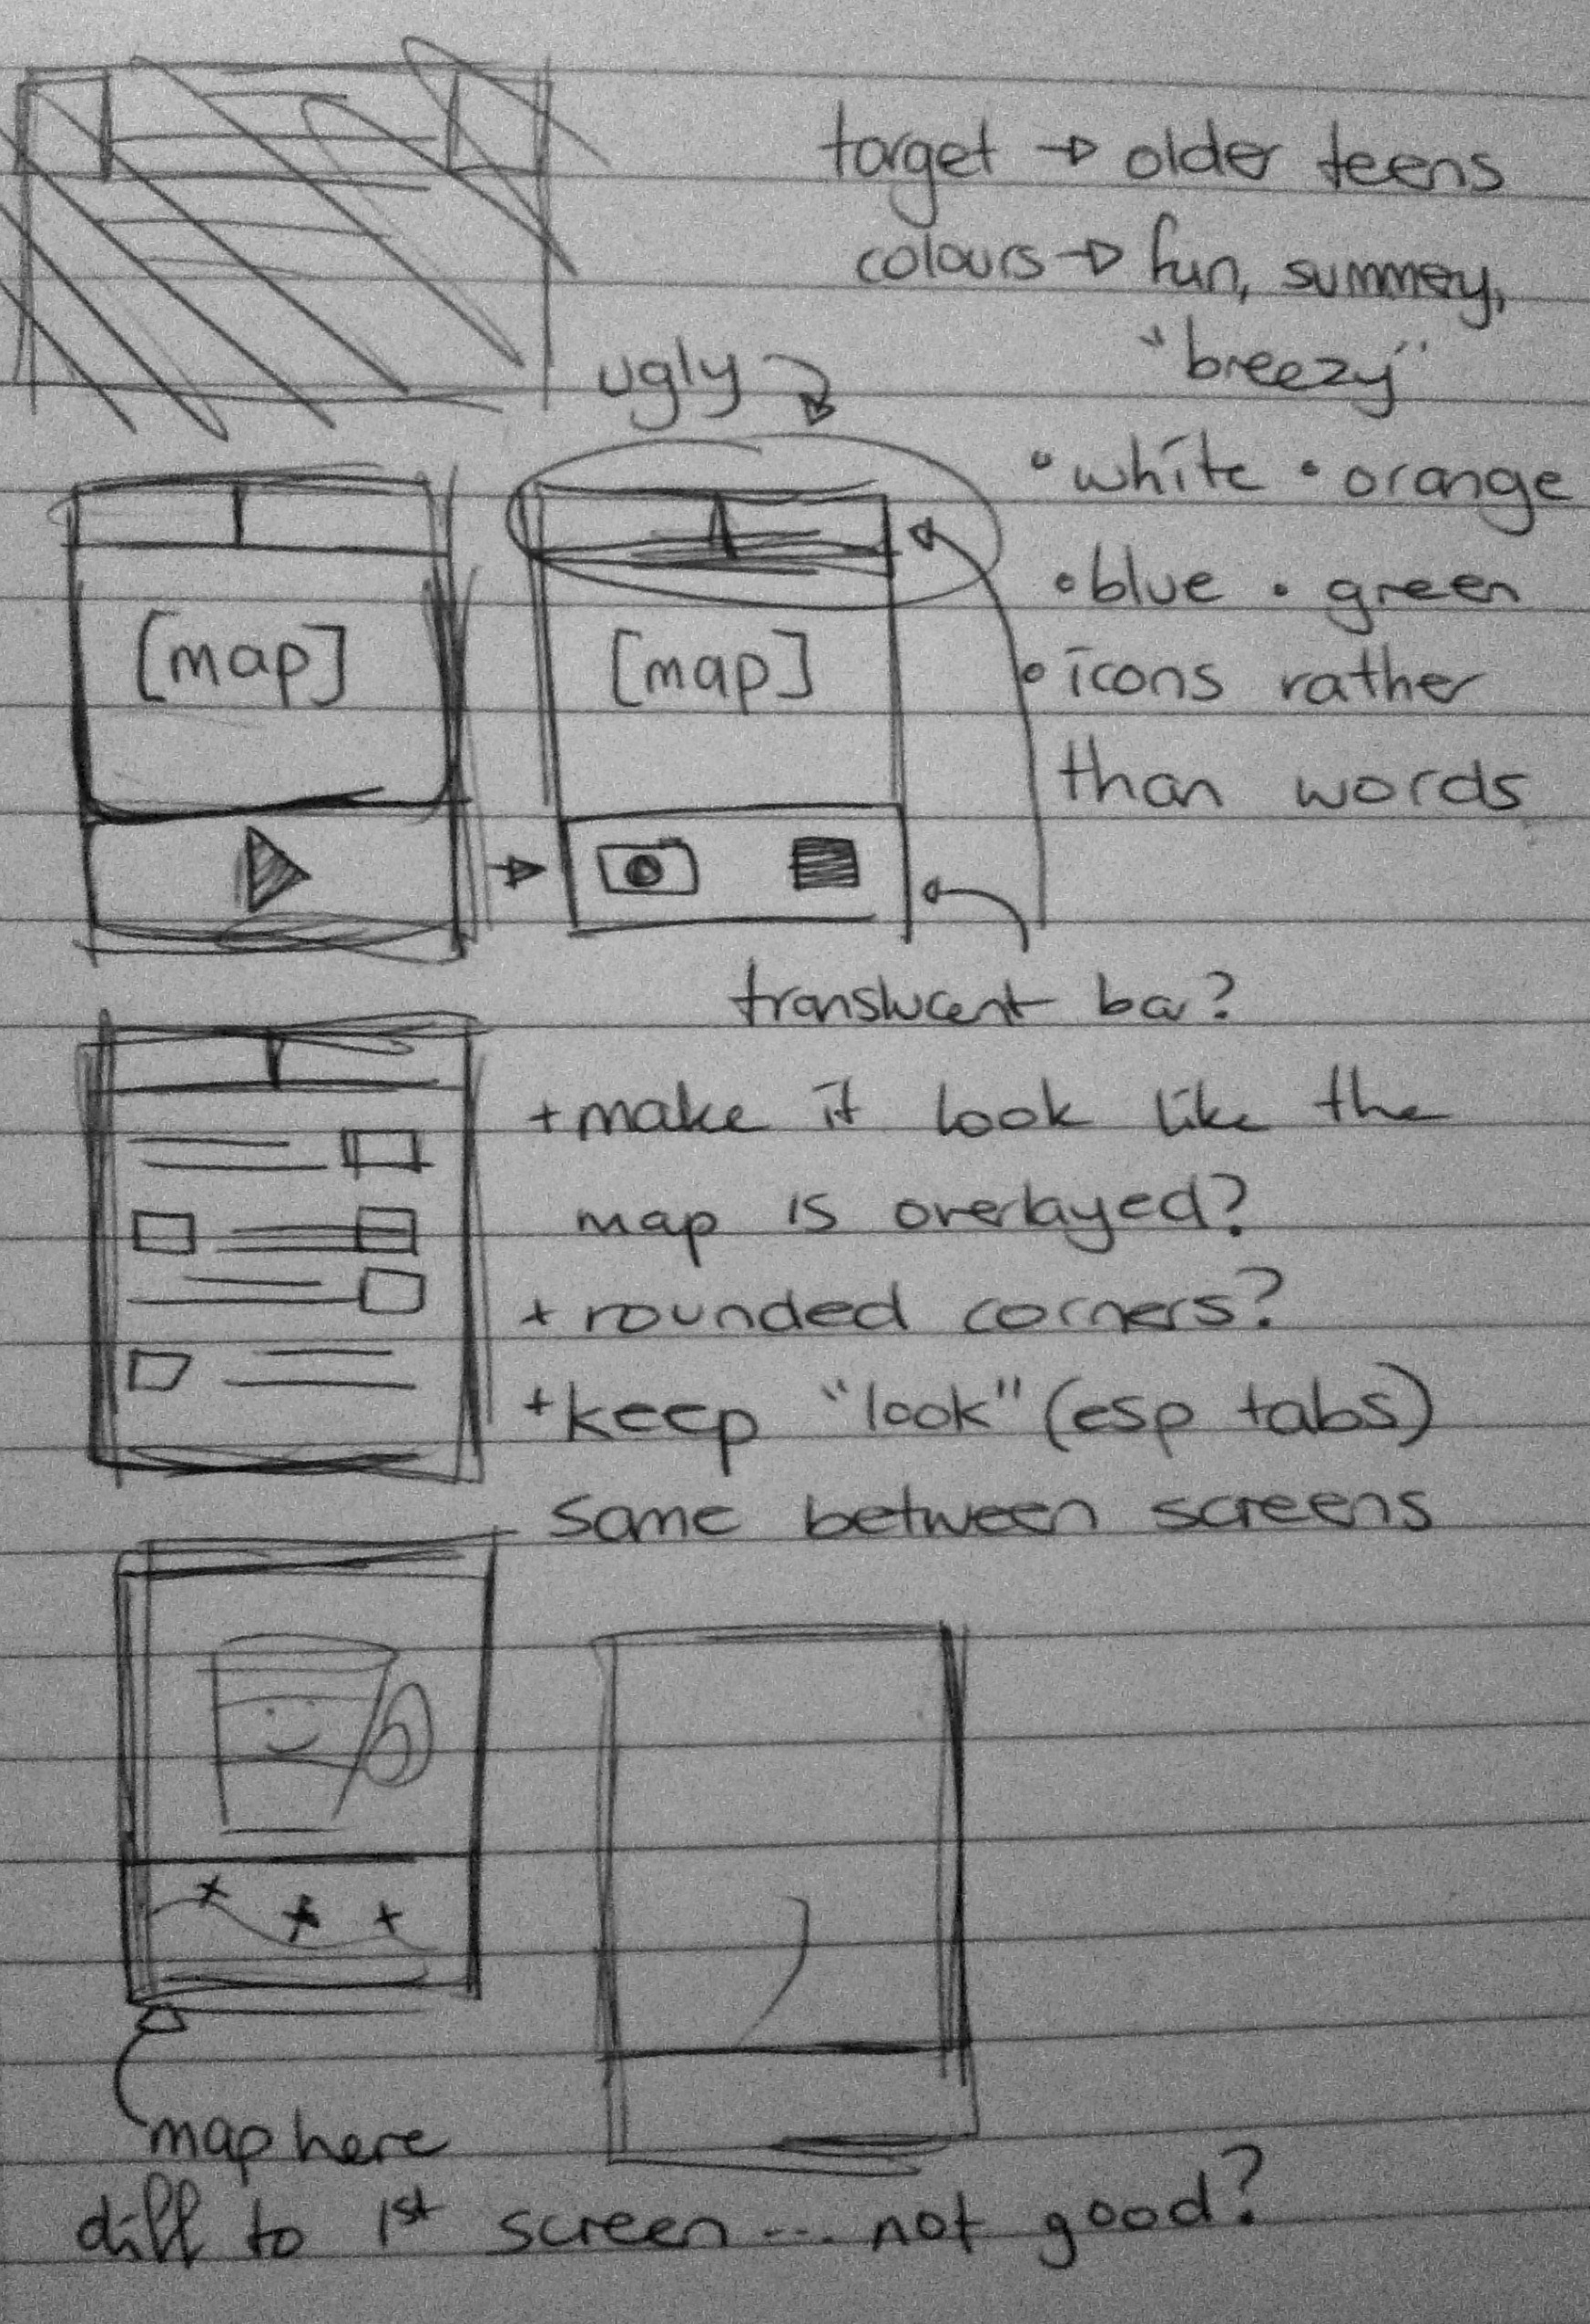 target → older teens
colours → fun, summery,
"breezy"
ugly
• white • orange
• blue • green
• icons rather
than words
[map]
[map]
translucent bar?
+ make it look like the
map is overlayed?
+ rounded corners?
+ keep "look" (esp tabs)
same between screens
map here
diff to 1st screen... not good?